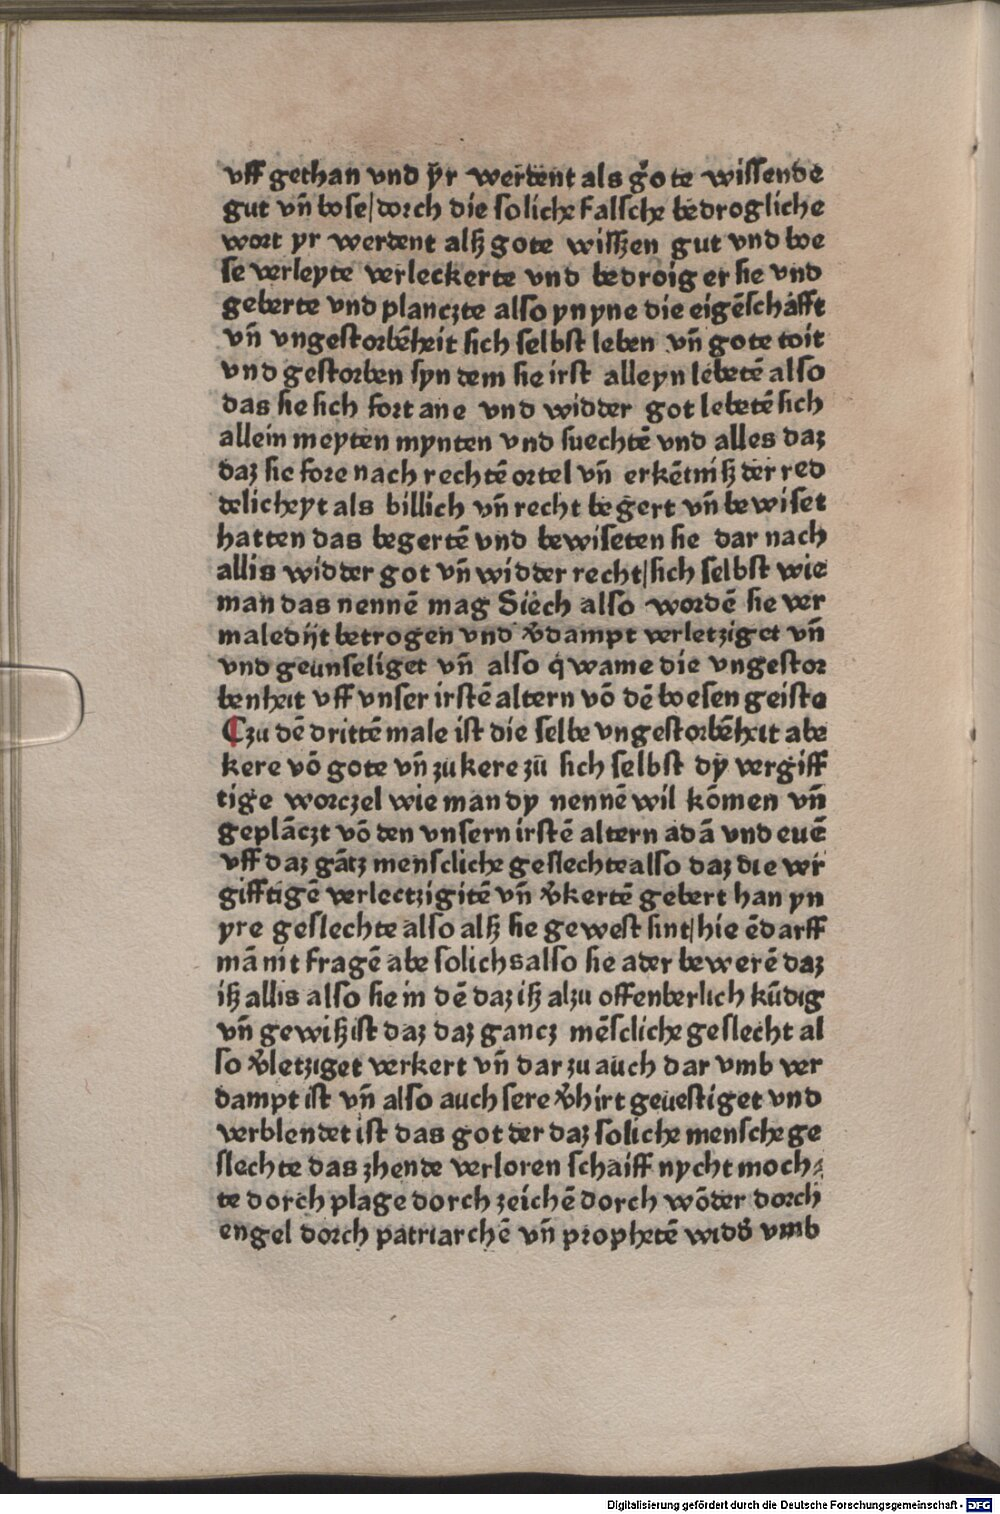 vff gethan vnd ẏr werdent als gote wiſſende
gut vn̄ boſe|dorch die ſoliche falſche bedrogliche
wort yr werdent alſz gote wiſſzen gut vnd boe
ſe verleyte verleckerte vnd bedroig er ſie vnd
geberte vnd planczte alſo yn yne die eigēſchafft
vn̄ vngeſtorbēheit ſich ſelbſt leben vn̄ gote toit
vnd geſtorben ſyn dem ſie irſt alleyn lebetē alſo
das ſie ſich fort ane vnd widder got lebetē ſich
allein meyten mynten vnd ſuechtē vnd alles daz
daz ſie fore nach rechtē ortel vn̄ erkētniſz der red
delicheyt als billich vn̄ recht begert vn̄ bewiſet
hatten das begertē vnd bewiſeten ſie dar nach
allis widder got vn̄ widder recht|ſich ſelbſt wie
man das nennē mag Siech alſo wordē ſie ver
maledijt betrogen vnd v̄dampt verletziget vn̄
vnd geunſeliget vn̄ alſo qwame die vngeſtor
benheit vff vnſer irſtē altern vō dē boeſen geiſte
Czu dē drittē male iſt die ſelbe vngeſtorbēheit abe
kere vō gote vn̄ zukere zū ſich ſelbſt dẏ vergiff
tige worczel wie man dy nennē wil kōmen vn̄
geplāczt vō den vnſern irſtē altern adā vnd euē
vff daz gātz menſcliche geſlechte alſo daz die ver
gifftigē verlectzigitē vn̄ v̄kertē gebert han yn
yre geſlechte alſo alſz ſie geweſt ſint|hie ēdarff
mā nit fragē abe ſolichs alſo ſie ader bewerē daz
iſz allis alſo ſie in dē daz iſz alzu offenberlich kūdig
vn̄ gewiſz iſt daz daz gancz mēſcliche geſlecht al
ſo v̄letziget verkert vn̄ dar zu auch dar vmb ver
dampt iſt vn̄ alſo auch ſere v̄hirt geueſtiget vnd
verblendet iſt das got der daz ſoliche menſche ge
ſlechte das zhende verloren ſchaiff nycht moch⸗
te dorch plage dorch zeichē dorch wōder dorch
engel dorch patriarchē vn̄ prophetē widd' vmb
Digitalisierung gefördert durch die Deutsche Forschungsgemeinschaft - DFG